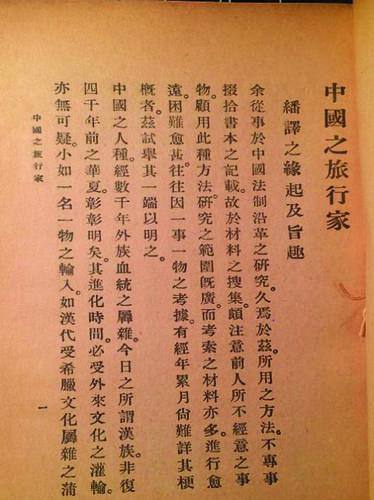 中國之旅行家
繙譯之緣起及旨趣
余從事於中國法制沿革之研究。久焉於茲。所用之方法。不專事
掇拾書本之記載。故於材料之搜集。頗注意前人所不經意之事
物。顧用此種方法。研究之範圍旣廣。而考索之材料亦多。進行愈
遠。困難愈甚。往往因一事一物之考據。有經年累月尙難詳其梗
槪者。茲試舉其一端以明之。
中國之人種。經數千年外族血統之羼雜。今日之所謂漢族。非復
四千年前之華夏。彰彰明矣。其進化時間。必受外來文化之灌輸。
亦無可疑。小如一名一物之輸入。如漢代受希臘文化羼雜之蒲
中國之旅行家
一